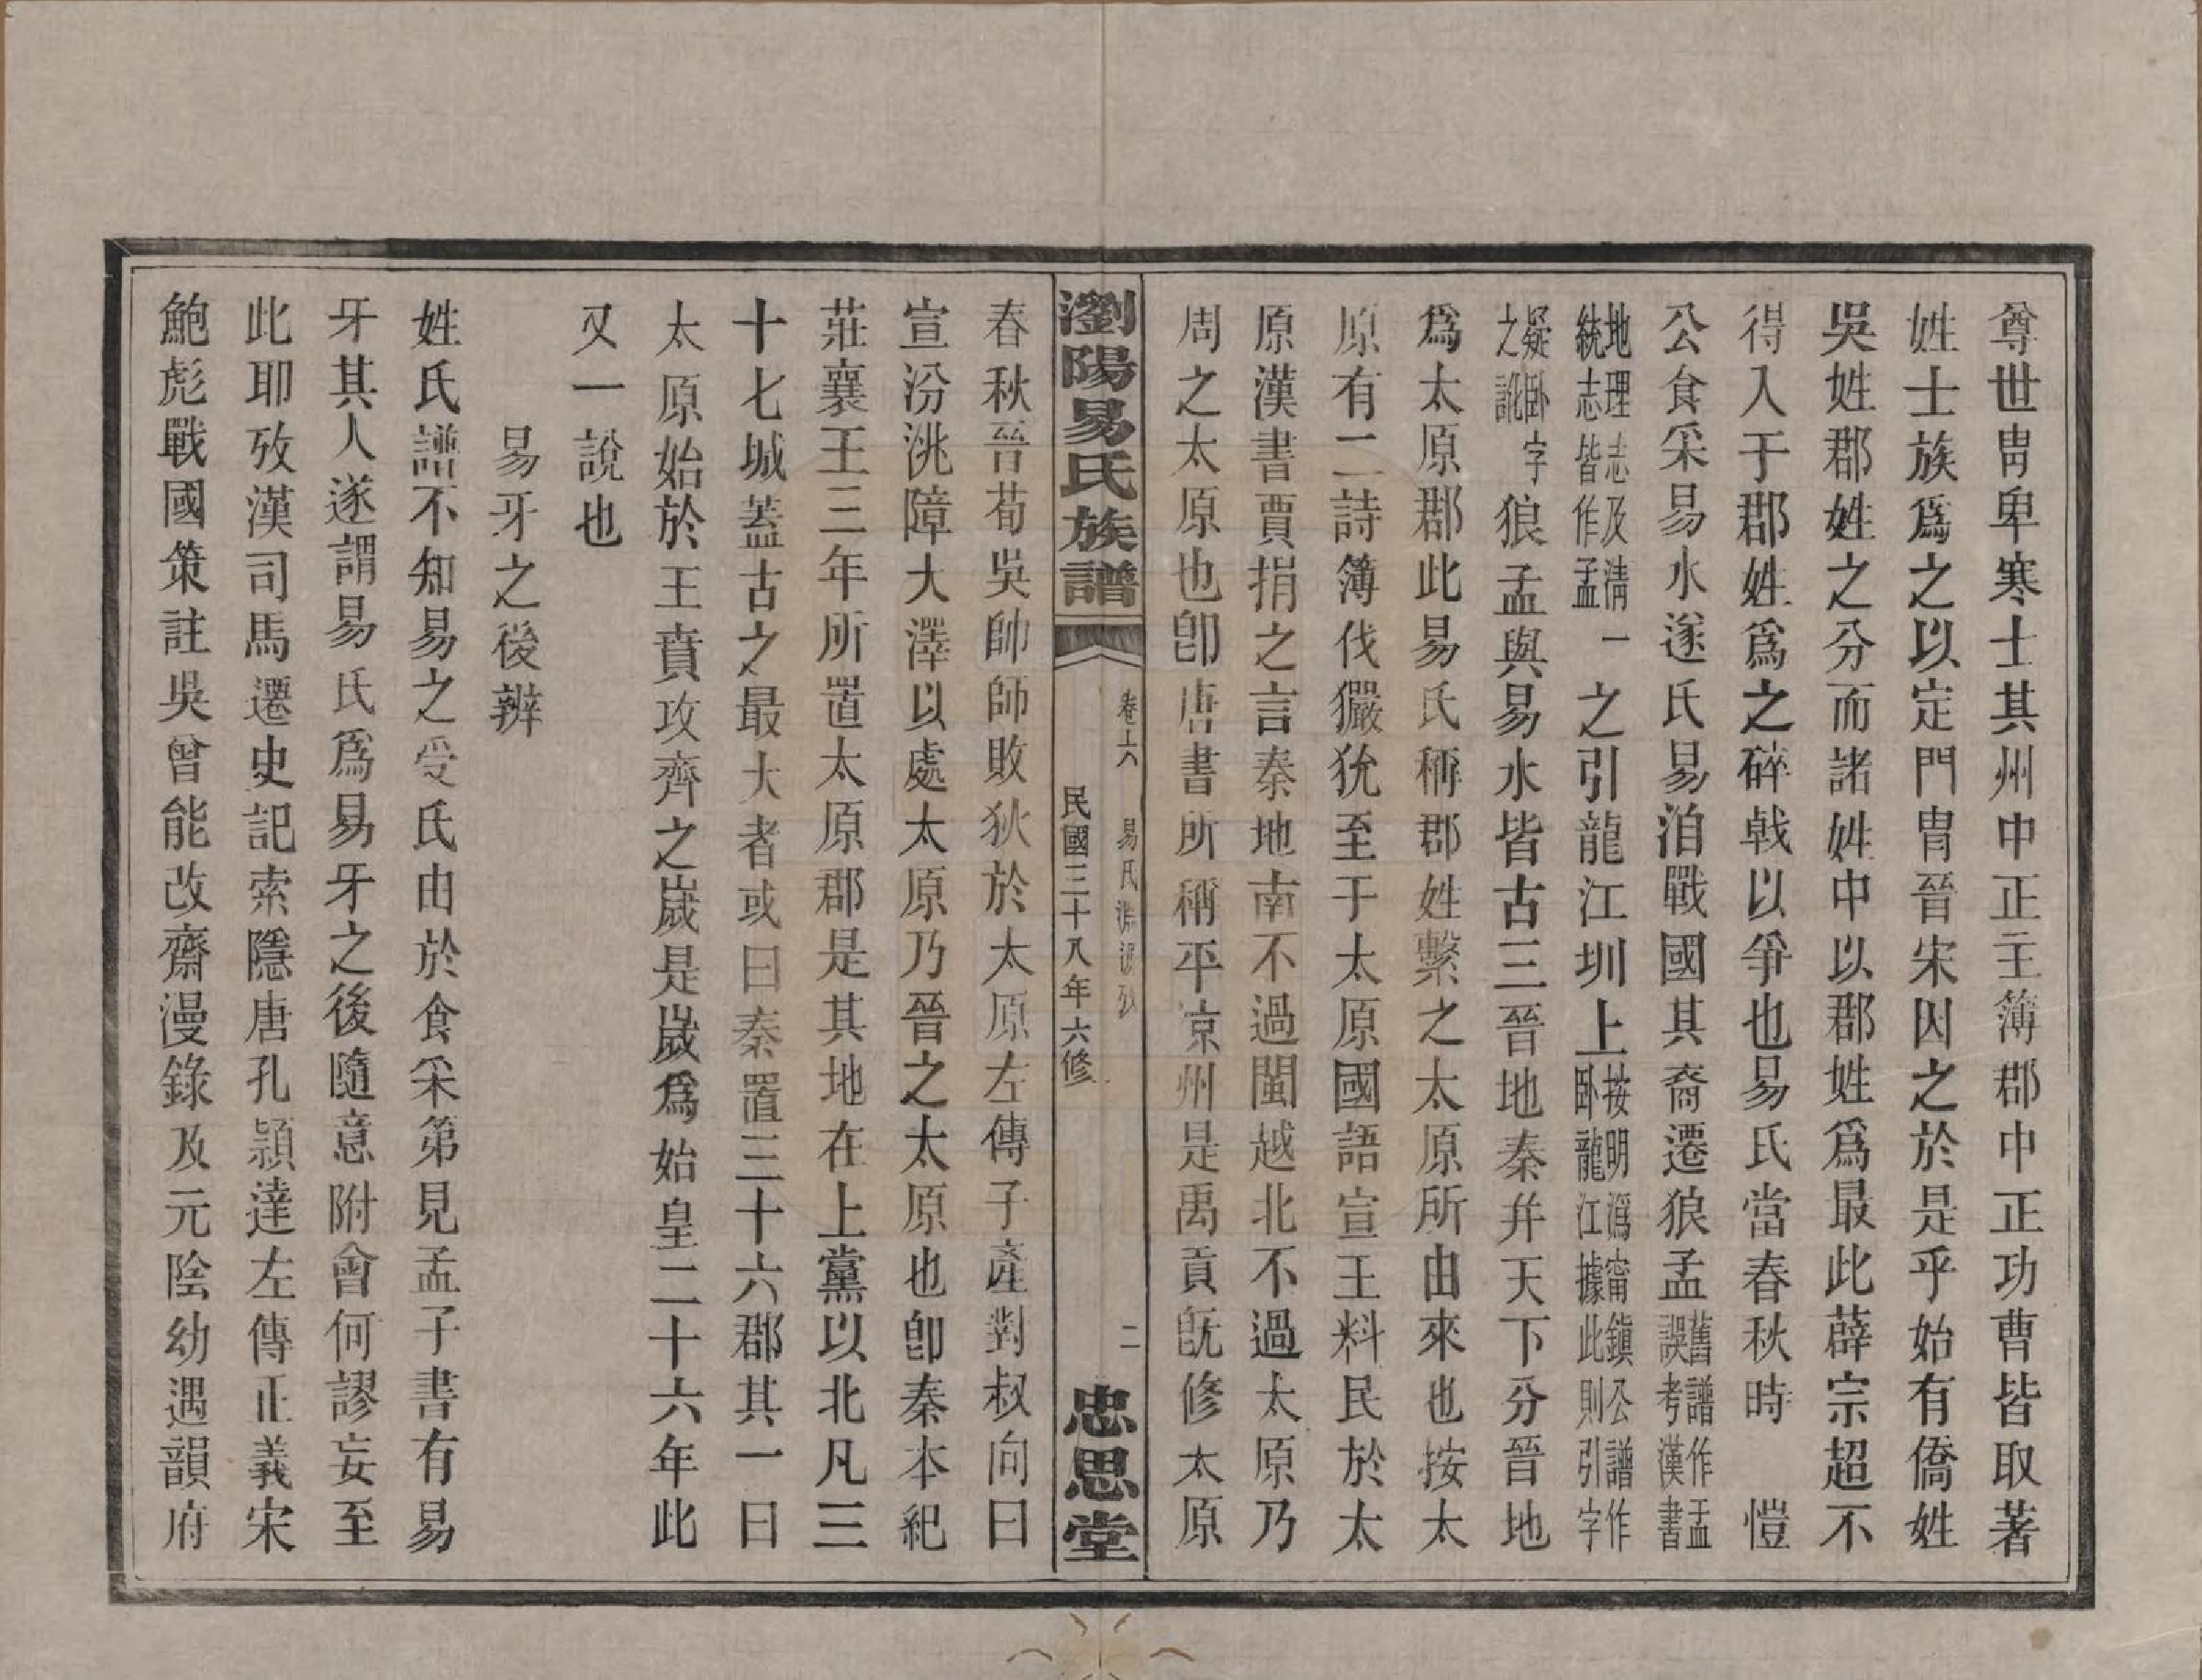 尊世冑卑寒士其州中正主簿郡中正功曹皆取著
姓士族爲之以定門冑晉宋因之於是乎始有僑姓
吳姓郡姓之分而諸姓中以郡姓爲最此薜宗超不
得入于郡姓爲之碎戟以爭也易氏當春秋時 愷
公食采易水遂氏易洎戰國其裔遷狼孟舊譜作盂誤考漢書
地理志及淸一統志皆作孟一之引龍江圳上按明潙甯鎭公譜作臥龍江據此則引字
疑臥字之訛狼孟與易水皆古三晉地秦幷天下分晉地
爲太原郡此易氏稱郡姓繫之太原所由來也按太
原有二詩簿伐玁狁至于太原國語宣王料民於太
原漢書賈捐之言秦地南不過閩越北不過太原乃
周之太原也卽唐書所稱平凉州是禹貢旣修太原
瀏陽易氏族譜 卷十六 易氏淵源攷 民國三十八年六修 二 忠思堂
春秋晉荀吳帥師敗狄於太原左傳子產對叔向曰
宣汾洮障大澤以處太原乃晉之太原也卽秦本紀
莊襄王三年所置太原郡是其地在上黨以北凡三
十七城蓋古之最大者或曰秦置三十六郡其一曰
太原始於王賁攻齊之歲是歲爲始皇二十六年此
又一說也
易牙之後辨
姓氏譜不知易之受氏由於食采第見孟子書有易
牙其人遂謂易氏爲易牙之後隨意附會何謬妄至
此耶攷漢司馬遷史記索隱唐孔穎達左傳正義宋
鮑彪戰國策註吳曾能改齋漫錄及元陰幼遇韻府